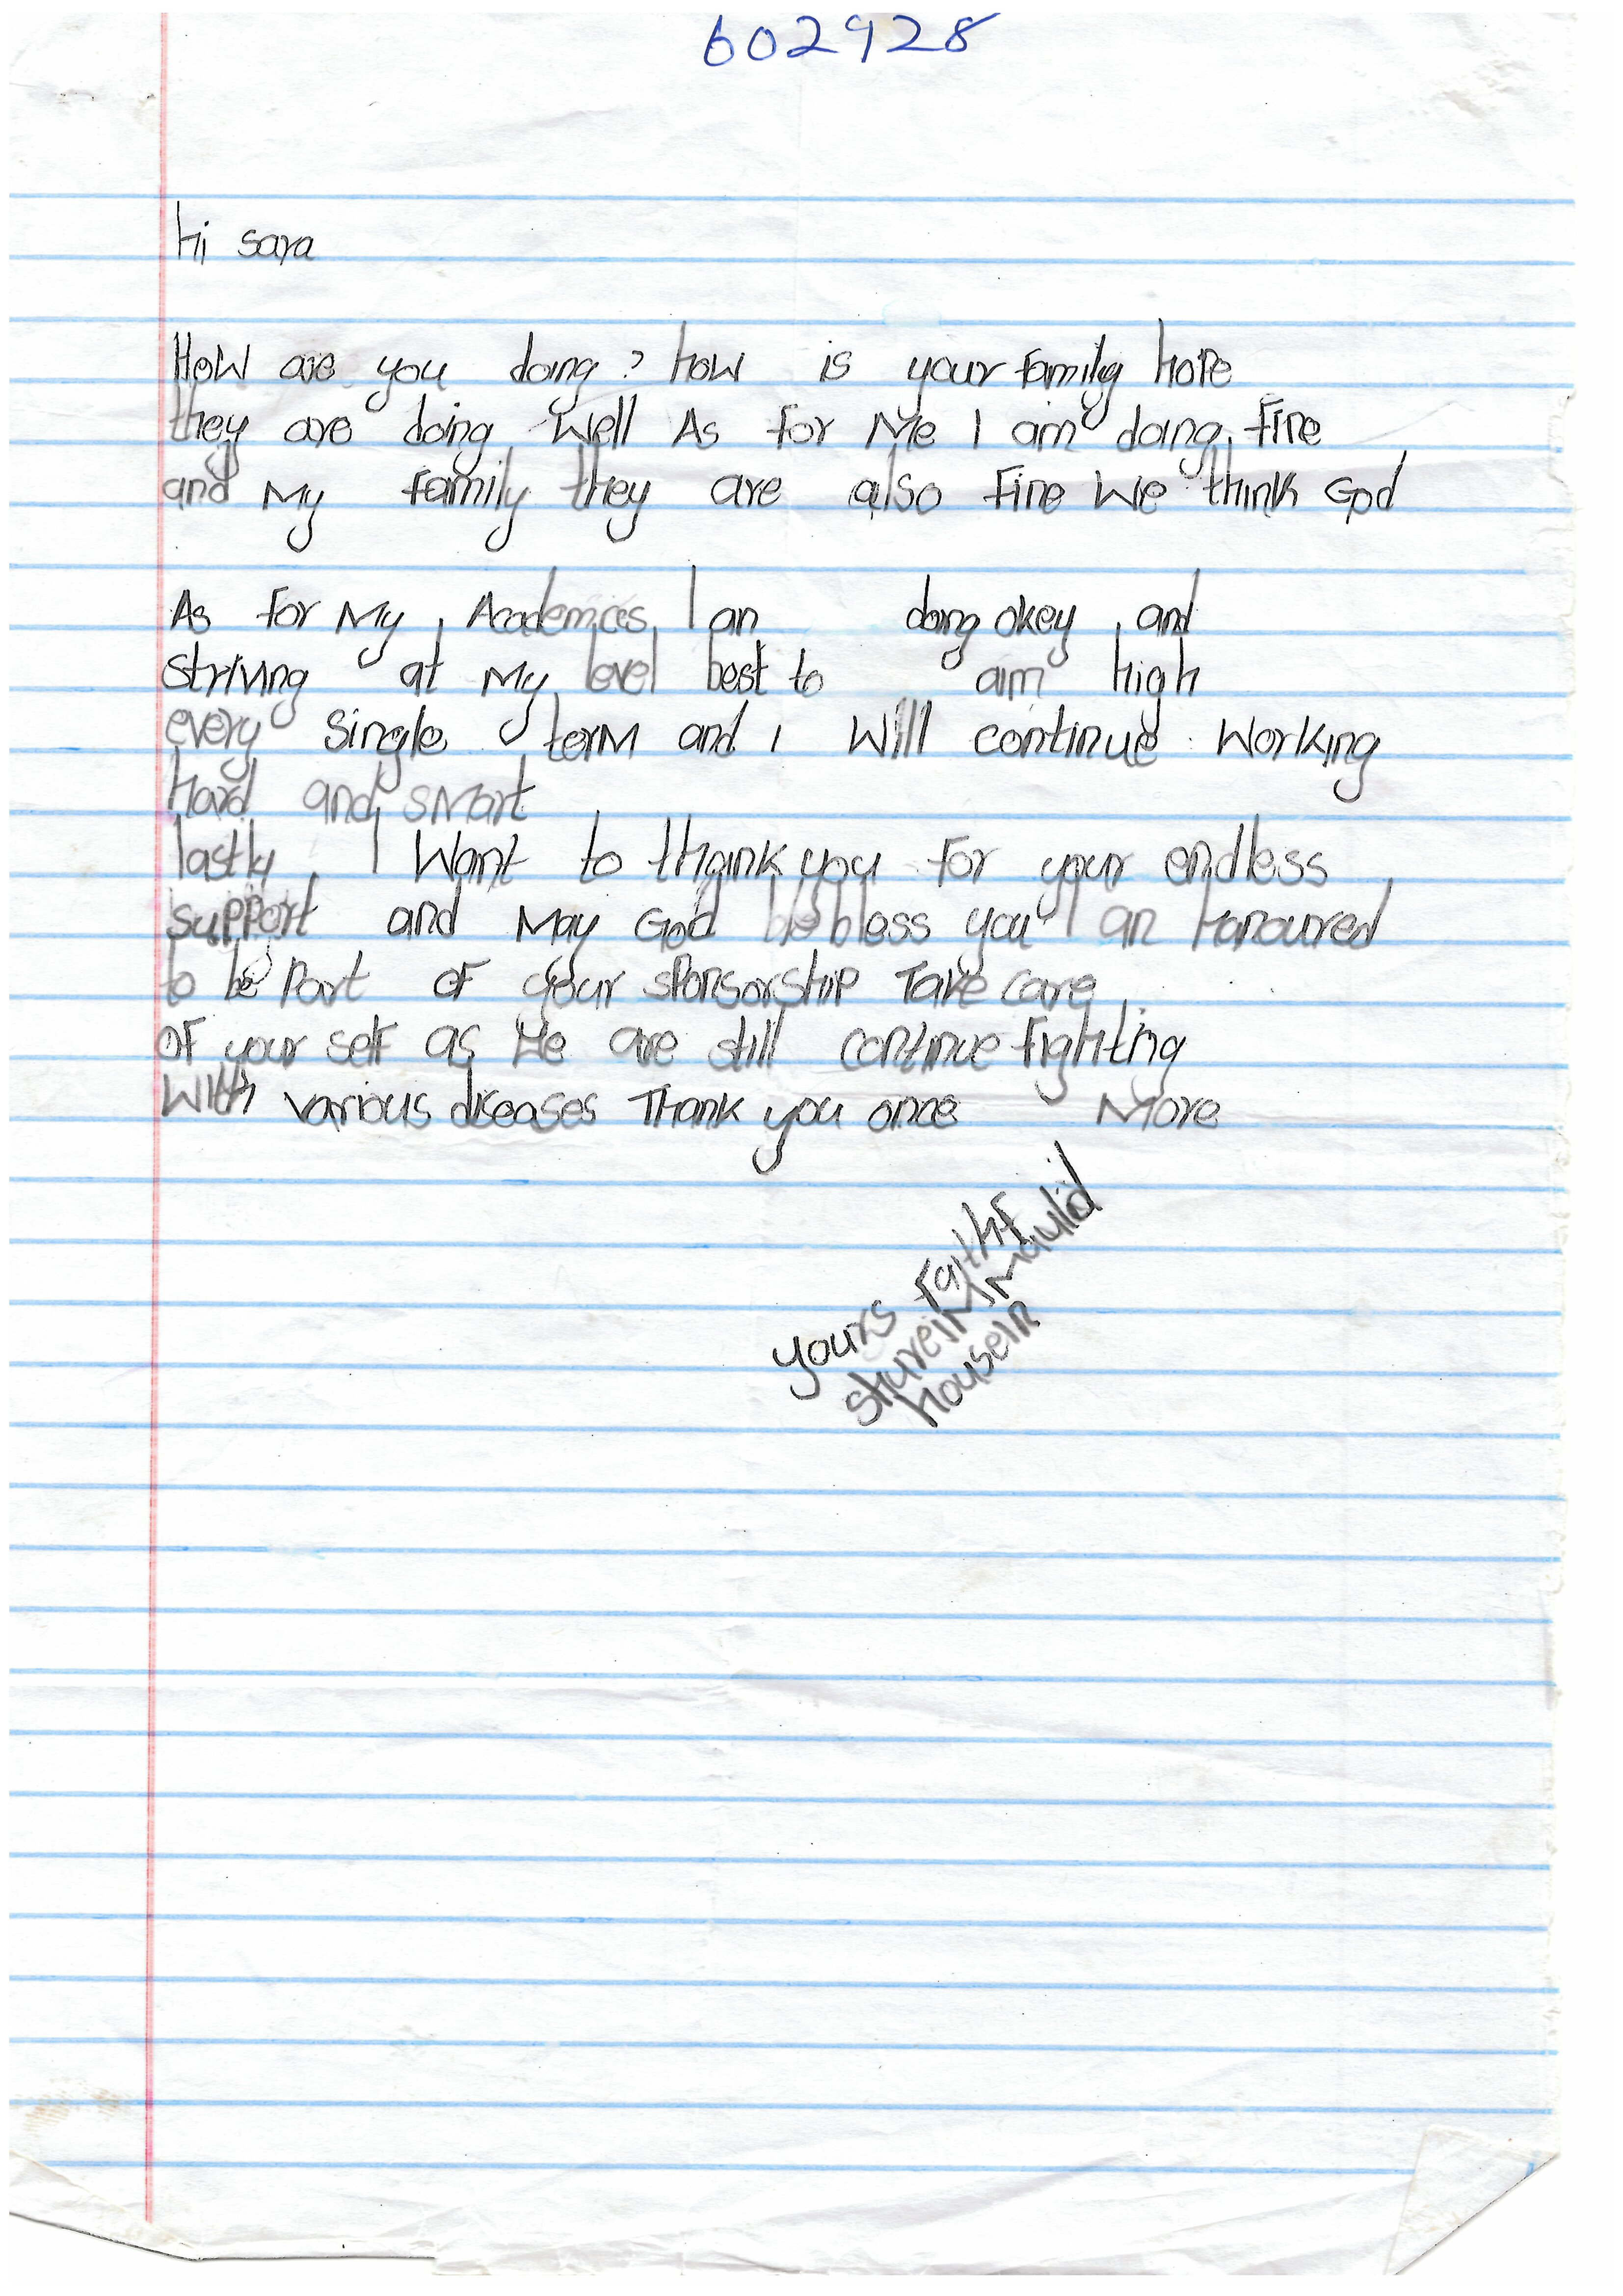 602928
hi sara
How are you doing? how is your family hope
they are doing well As for Me I am doing fine
and My family they are also fine We think God
As for My Academics I an doing okey and
striving at My level best to aim high
every single term and I Will continue Working
Hard and smart
lastly I Want to thank you for your endless
support and May God be bless you I an Honoured
to be Part of your sponsorship Take care
of your self as We are still continue fighting
With various diseases Thank you once More
yours Faithf
shureiM Maulid
housein